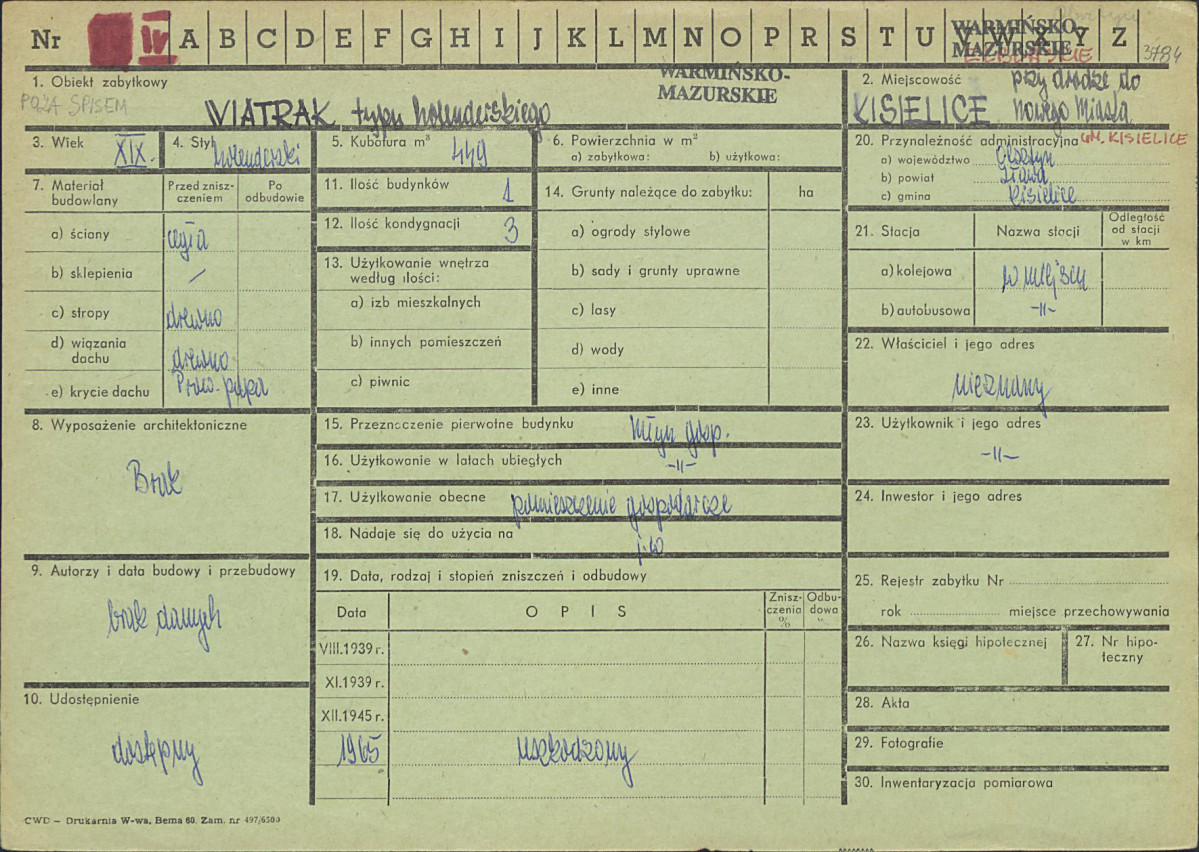 Nr IV A B C D E F G H I J K L M N O P R S T U V W X Y Z
WARMIŃSKO-
MAZURSKIE
3784
1. Obiekt zabytkowy
POZA SPISEM
WIATRAK typu holenderskiego
WARMIŃSKO-
MAZURSKIE
2. Miejscowość przy drodze do
KISIELICE Nowego Miasta
3. Wiek XIX.
4. Styl holenderski
5. Kubatura m³ 449
6. Powierzchnia w m²
a) zabytkowa: b) użytkowa:
7. Materiał budowlany
Przed znisz-
czeniem
Po
odbudowie
a) ściany cegła
b) sklepienia —
c) stropy drewno
d) wiązania
dachu drewno
e) krycie dachu papa
8. Wyposażenie architektoniczne
Brak
9. Autorzy i data budowy i przebudowy
brak danych
10. Udostępnienie
dostępny
11. Ilość budynków 1
12. Ilość kondygnacji 3
13. Użytkowanie wnętrza
według ilości:
a) izb mieszkalnych
b) innych pomieszczeń
c) piwnic
14. Grunty należące do zabytku: ha
a) ogrody stylowe
b) sady i grunty uprawne
c) lasy
d) wody
e) inne
15. Przeznaczenie pierwotne budynku Młyn gosp.
16. Użytkowanie w latach ubiegłych -II-
17. Użytkowanie obecne pomieszczenie gospodarcze
18. Nadaje się do użycia na j.w
19. Data, rodzaj i stopień zniszczeń i odbudowy
Data OPIS
Znisz-
czenia
%
Odbu-
dowa
VIII.1939 r.
XI.1939 r.
XII.1945 r.
1965 uszkodzony
20. Przynależność administracyjna GM. KISIELICE
a) województwo Olsztyn
b) powiat Iława
c) gmina Kisielice
21. Stacja Nazwa stacji
Odległość
od stacji
w km
a) kolejowa w miejscu
b) autobusowa -II-
22. Właściciel i jego adres
nieznany
23. Użytkownik i jego adres
-II-
24. Inwestor i jego adres
25. Rejestr zabytku Nr
rok miejsce przechowywania
26. Nazwa księgi hipotecznej
27. Nr hipo-
teczny
28. Akta
29. Fotografie
30. Inwentaryzacja pomiarowa
CWD — Drukarnia W-wa, Bema 60. Zam. nr 497/6500